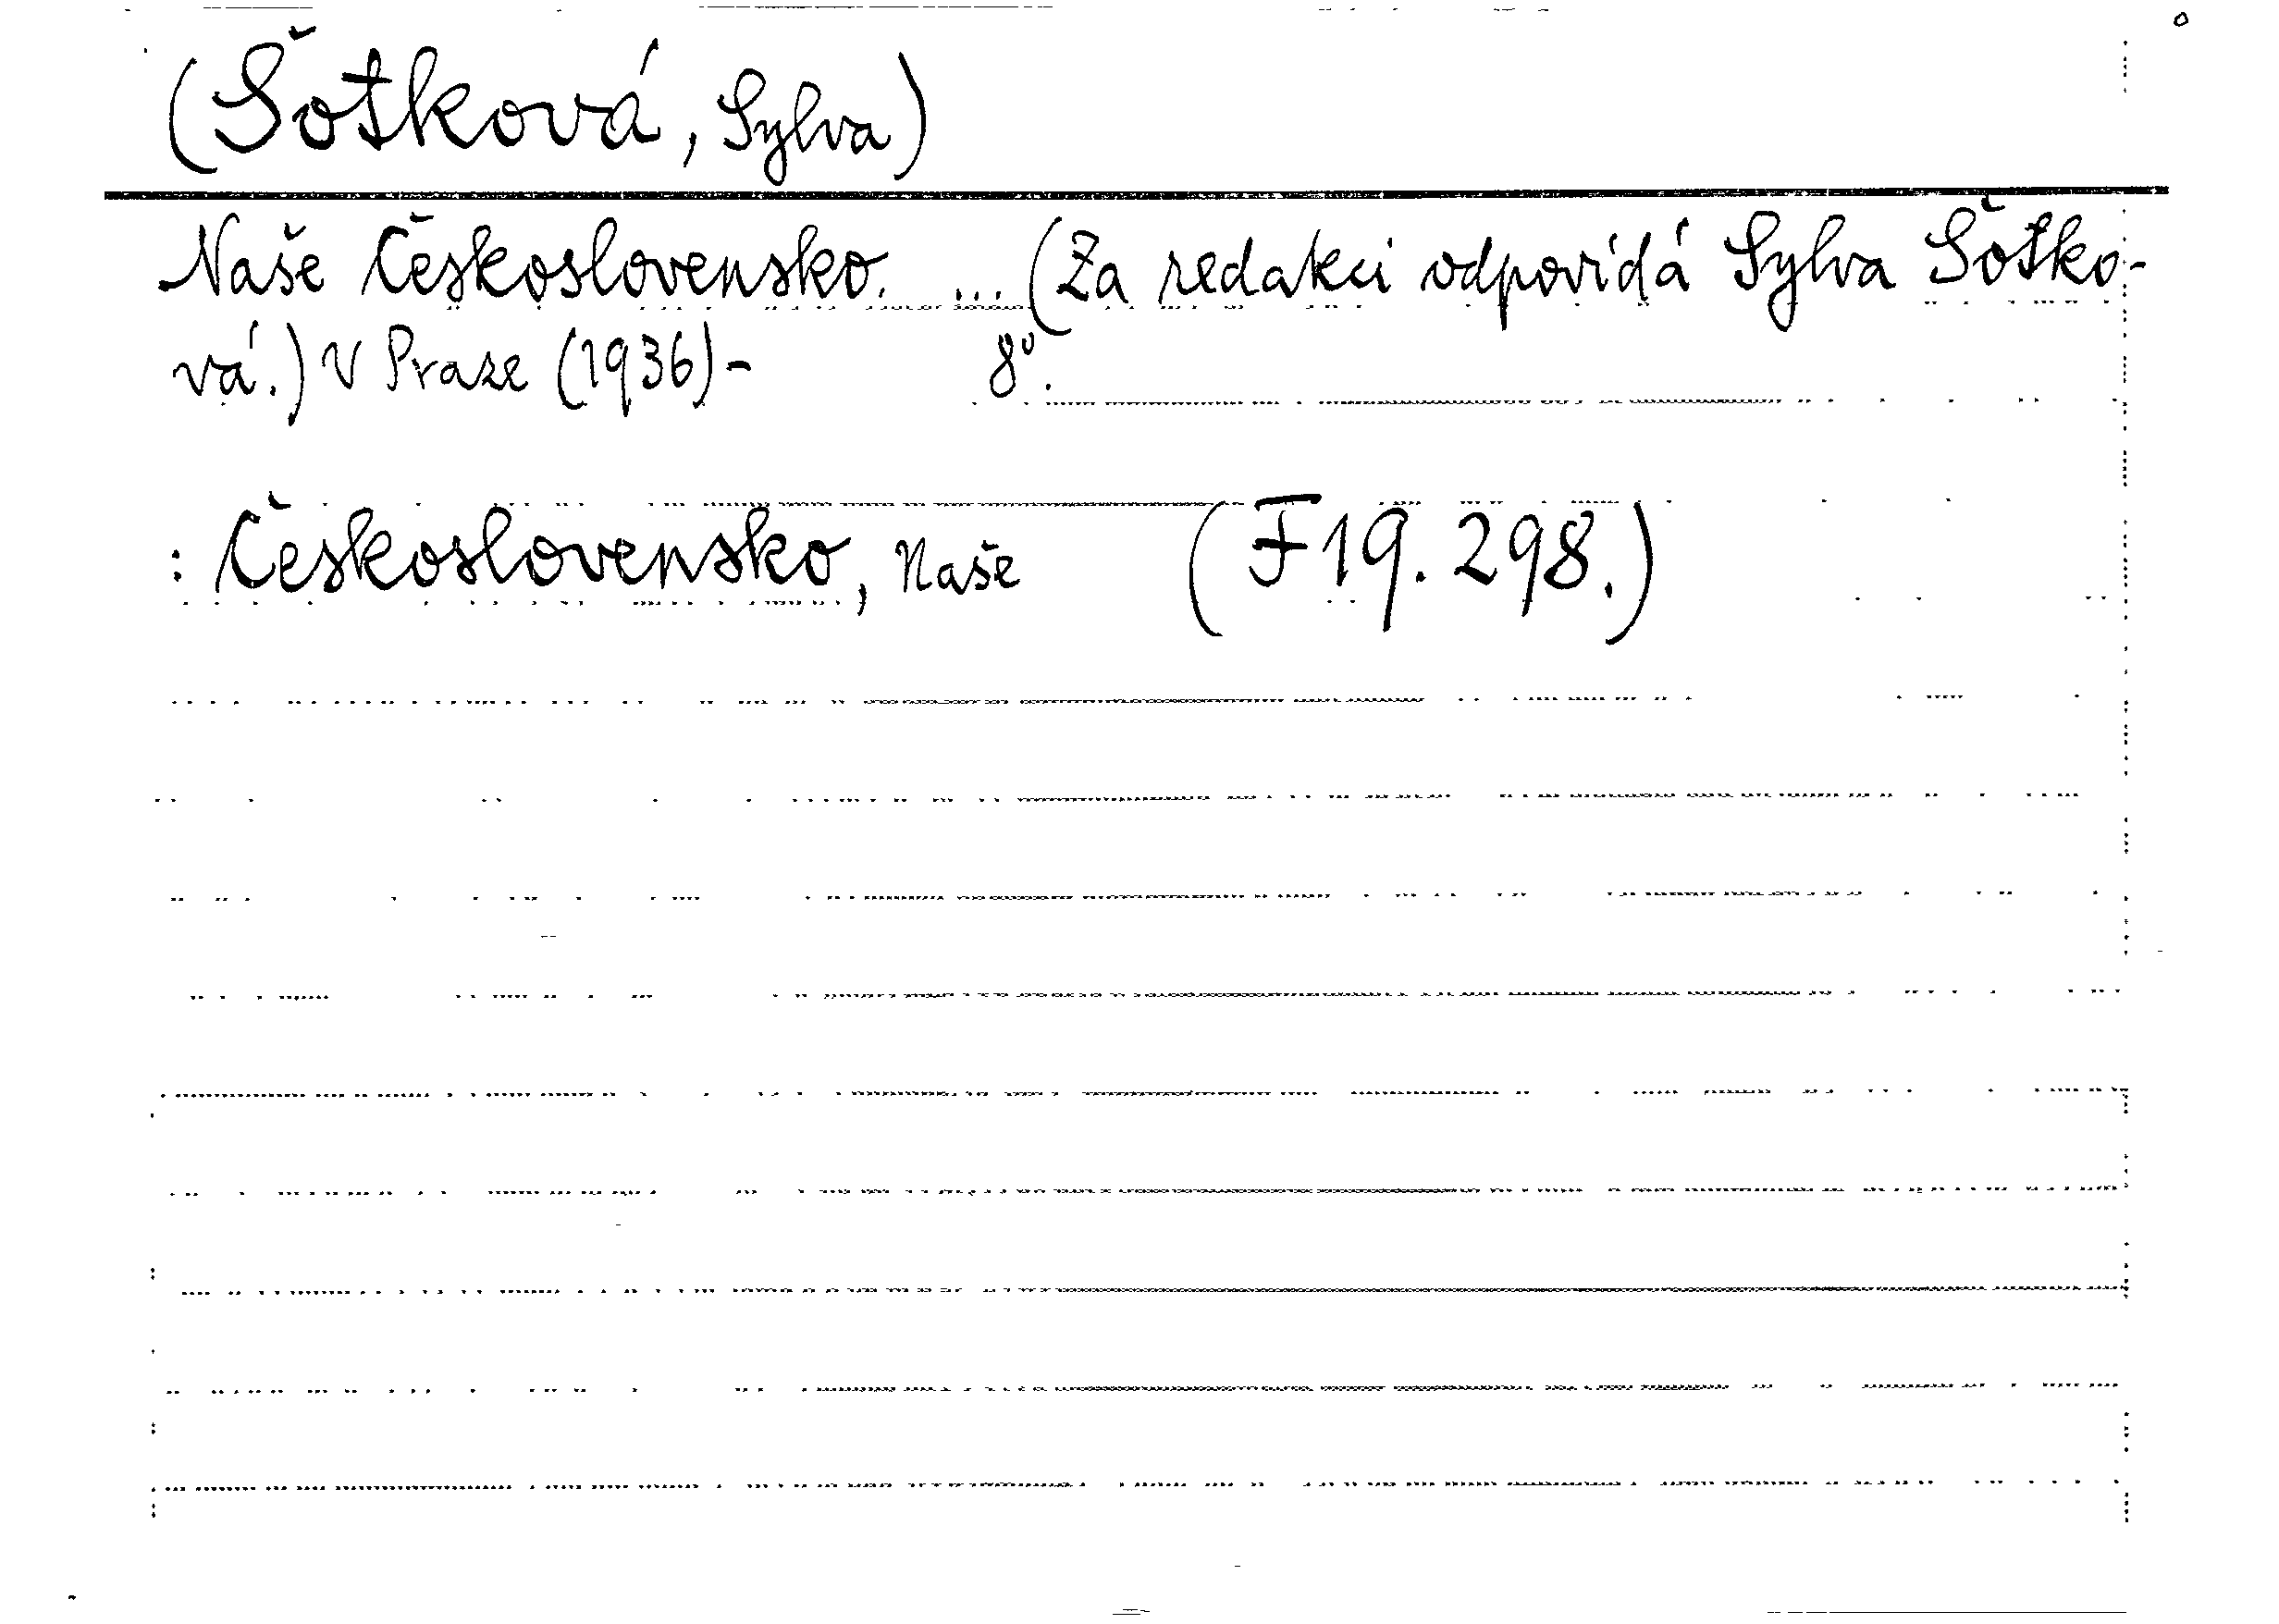 (Šotková, Sylva)
Naše Československo. ... (Za redakci odpovídá Sylva Šotko-
vá.) V Praze (1936)- 8°.
: Československo, Naše (F 19.298.)